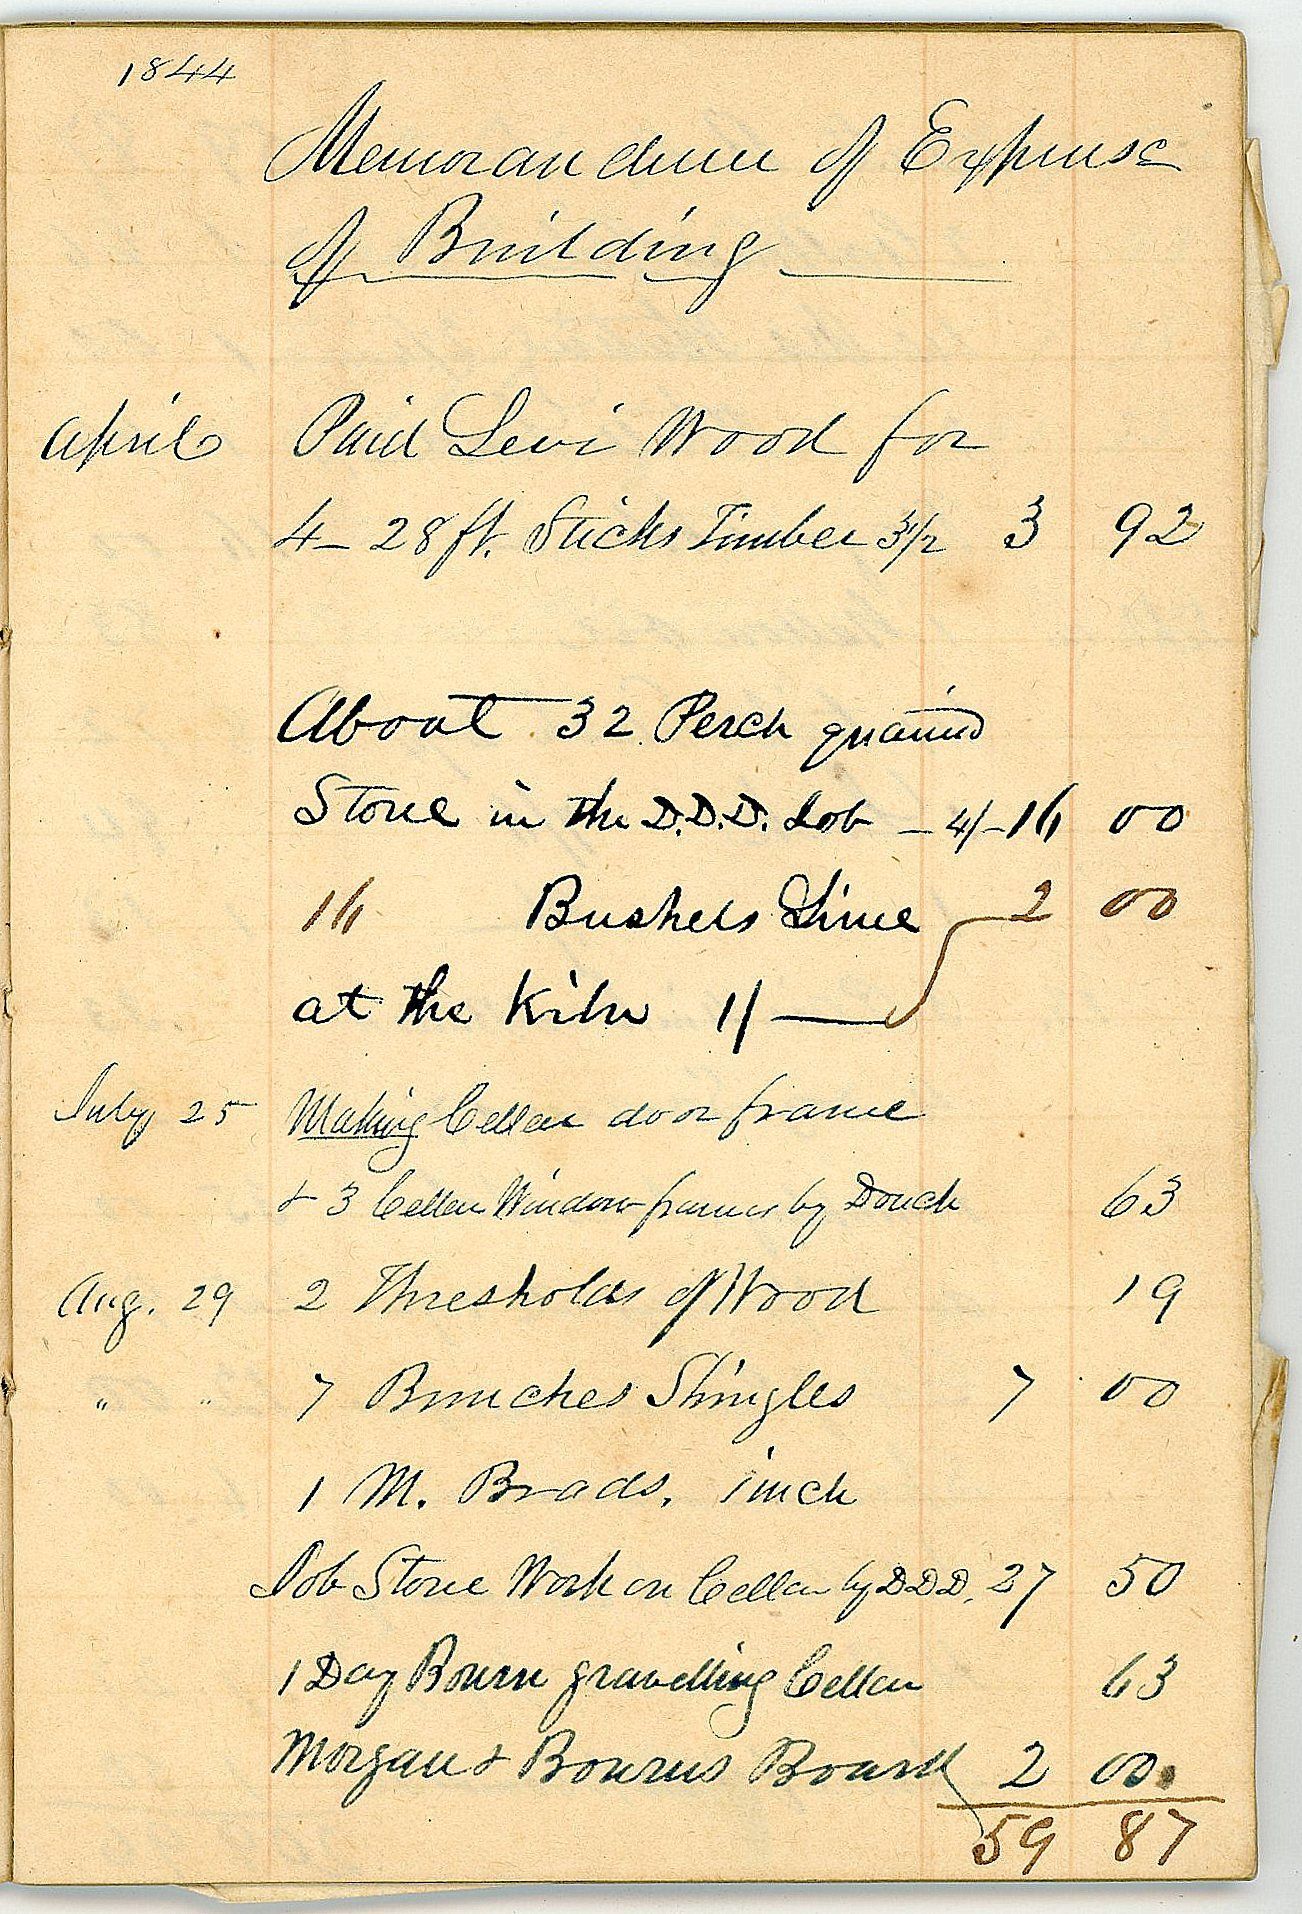 1844
Memorandum of Expense
of Building
April Paid Levi Wood for
4 - 28 ft. Sticks Timber 3 1/2 3 92
About 32 Perch quarried
Stone in the D.D.D. Lot - 4/- 16 00
16 Bushels Lime 2 00
at the Kiln 1/
July 25 Making Cellar door frame
& 3 Cellar Window frames by Douch 63
Aug. 29 2 Thresholds of Wood 19
" " 7 Bunches Shingles 7 00
1 M. Brads, inch
Job Stone Work on Cellar by DDD. 27 50
1 Day Bourn gravelling Cellar 63
Morgan & Bourns Board 2 00.
59 87